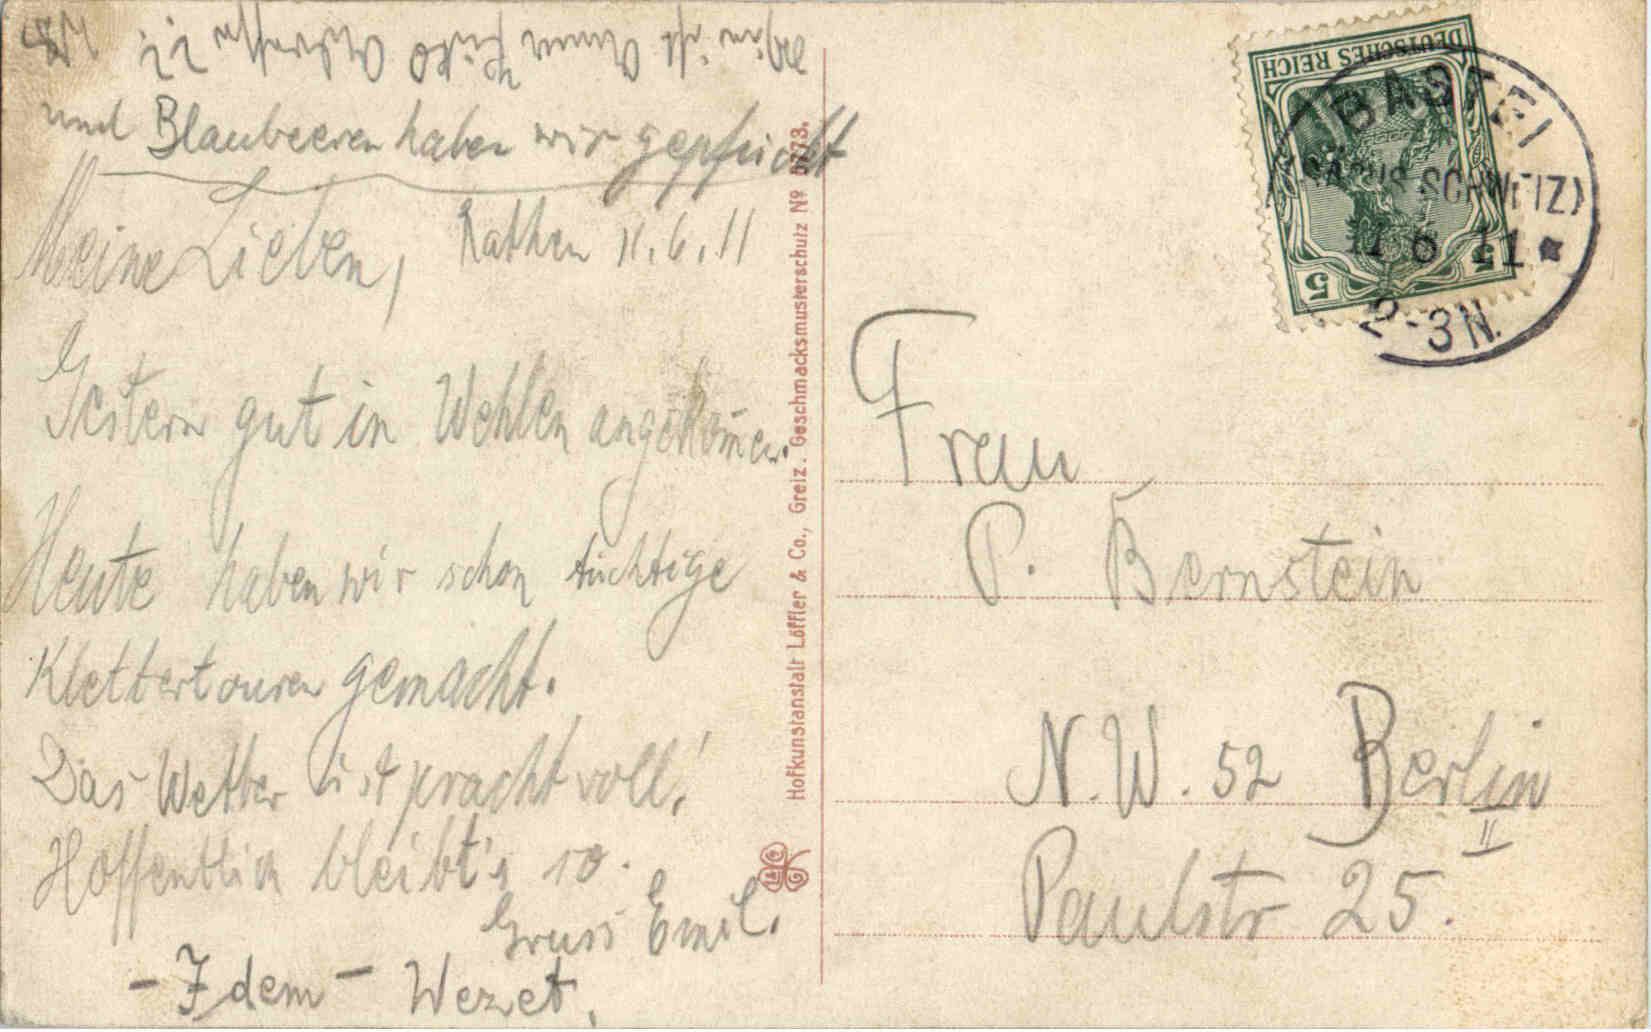 und Blaubeeren haben wir gepflückt
Meine Lieben, Rathen 11.6.11
Gestern gut in Wehlen angekom̅en.
Heute haben wir schon tüchtige
Klettertouren gemacht.
Das Wetter ist prachtvoll!
Hoffentlich bleibt's so.
Gruss Emil.
- Idem - Wezet.
Hofkunstanstalt Löffler & Co., Greiz. Geschmacksmusterschutz Nº
DEUTSCHES REICH
5 5
BASTEI
(SÄCHS. SCHWEIZ)
11 6 11 *
2-3N.
Frau
P. Bernstein
N.W. 52 Berlin
II
Paulstr 25.